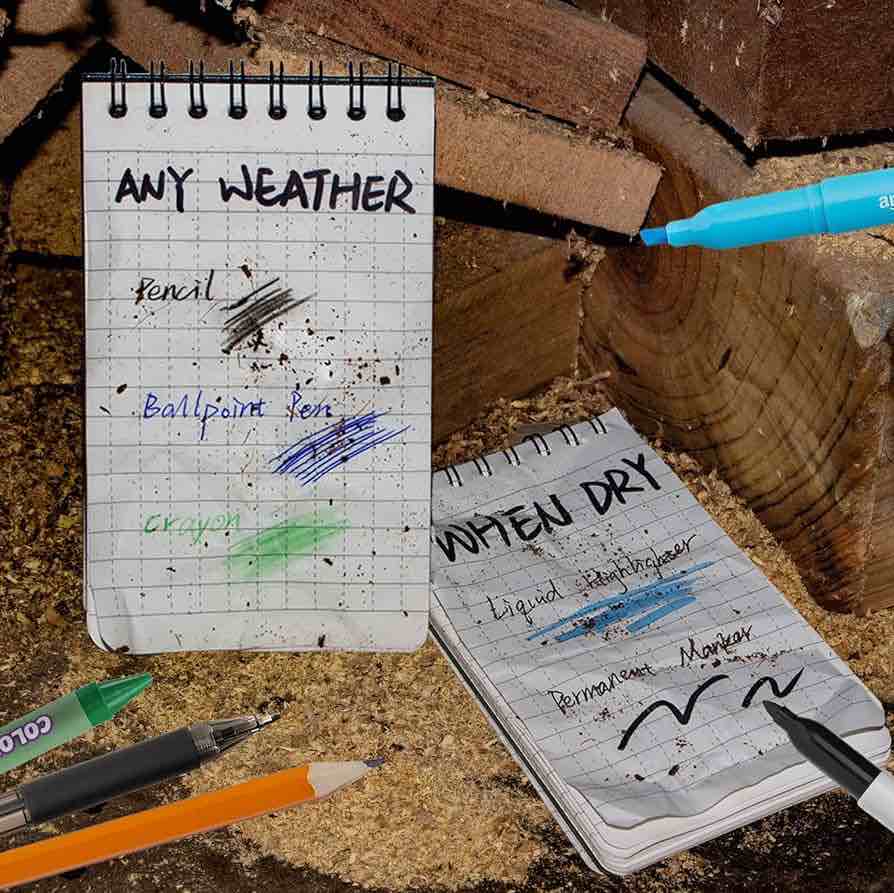 ANY WEATHER
Pencil
Ballpoint Pen
Crayon
WHEN DRY
Liquid Highlighter
Permanent Marker